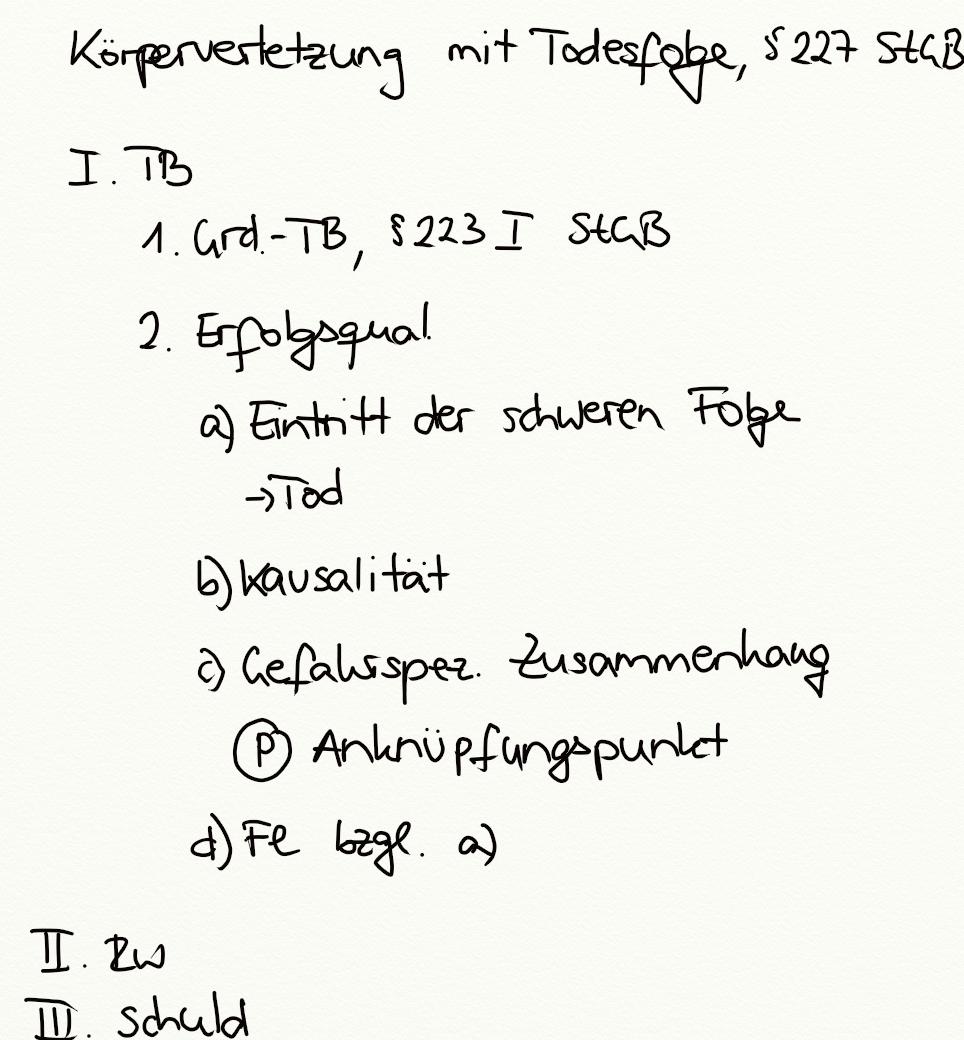 Körperverletzung mit Todesfolge, § 227 StGB
I. TB
1. Grd.-TB, § 223 I StGB
2. Erfolgsqual.
a) Eintritt der schweren Folge
→ Tod
b) Kausalität
c) Gefahrspez. Zusammenhang
P Anknüpfungspunkt
d) Fl bzgl. a)
II. RW
III. Schuld